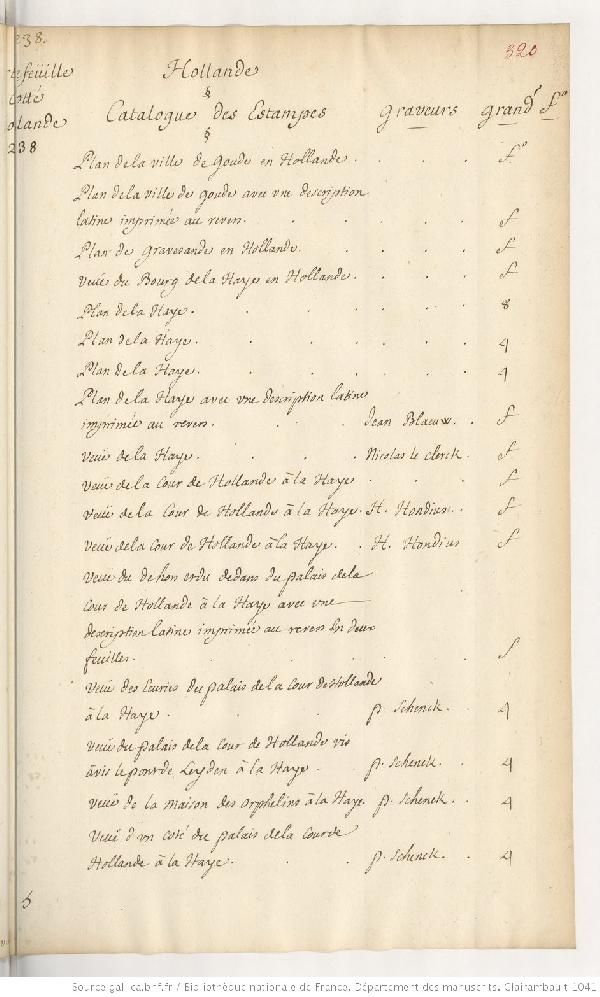 238.
320
tefeüille
Cotté
olande
238
Hollande
§
Catalogue des Estampes graveurs grandr fo
§
Plan de la ville de Goude en Hollande . . . . fo
Plan de la ville de goude avec vne description
latine imprimée au revers . . . . . f
Plan de Gravesande en Hollande . . . . f
Veüe du Bourg de la Haye en Hollande . . . . f
Plan de la Haye . . . . . 8
Plan de la Haye . . . . . 4
Plan de la Haye . . . . . 4
Plan de la Haye avec vne description latine
imprimée au revers . . . Jean Blaeuw . . f
Veüe de la Haye . . . . Nicolas le Clerck . f
Veüe de la Cour de Hollande à la Haye . . . f
Veüe de la Cour de Hollande à la Haye . H. Hondius . . f
Veüe de la Cour de Hollande à la Haye . . H. Hondius f
Veüe du dehors et du dedans du palais de la
Cour de Hollande à la Haye avec vne
description latine imprimée au revers En deux
feuilles . . . . . f
Veüe des Ecuries du palais de la Cour de Hollande
à la Haye . . . p. Schenck . . 4
Veüe du palais de la Cour de Hollande vis
à vis le pont de Leyden à la Haye . . p. Schenck . . 4
Veüe de la maison des orphelins à la Haye . p. Schenck . . 4
Veüe d'vn Costé du palais de la Cour de
Hollande à la Haye . . . p. Schenck . . 4
Source gallica.bnf.fr / Bibliothèque nationale de France. Département des manuscrits. Clairambault 1041